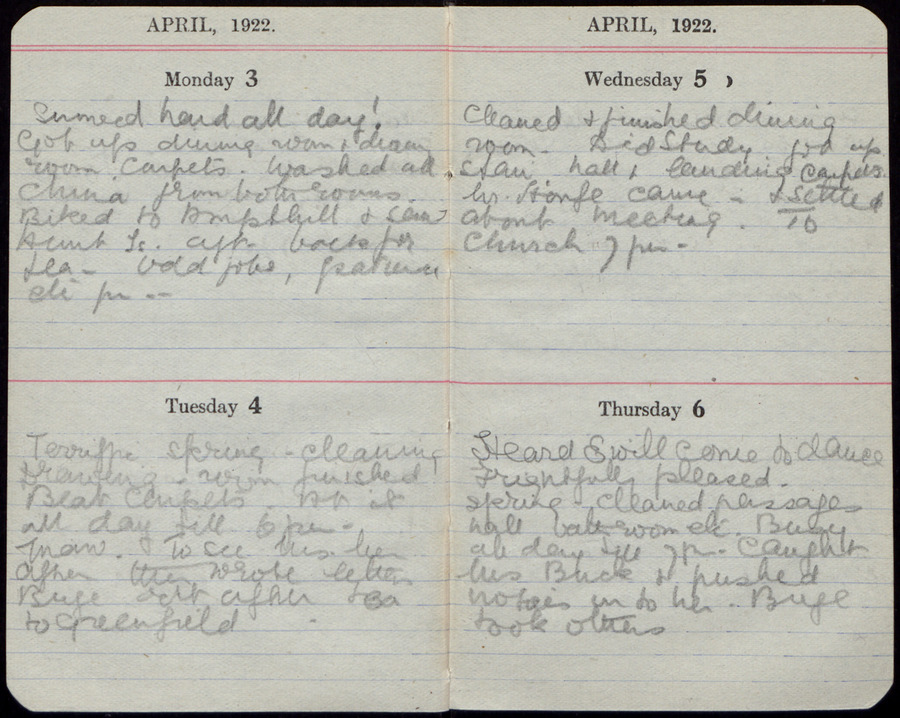 APRIL, 1922.
Monday 3
hard all day!
Got up dining room & drawing
room carpets. Washed all
China from both rooms.
Biked to Ampthill & saw
Aunt Is. aft. back for
tea - Odd jobs,
etc pm --
Tuesday 4
Terrific spring-cleaning
Drawing-room finished
Beat Carpets. At it
all day till 6 pm -
To see Mrs.
after then wrote letters
Buge out after tea
to Greenfield
APRIL, 1922.
Wednesday 5
Cleaned & finished dining
room. Did Study got up
Stair, hall & landing carpets.
came - & settled
about meeting. To
Church 7 pm -
Thursday 6
Heard E will come to dance
Frightfully pleased.
Spring-cleaned passage
hall bathroom etc. Busy
all day till 7 p.- Caught
Mrs Buck & pushed
notices in to her. Buge
took others